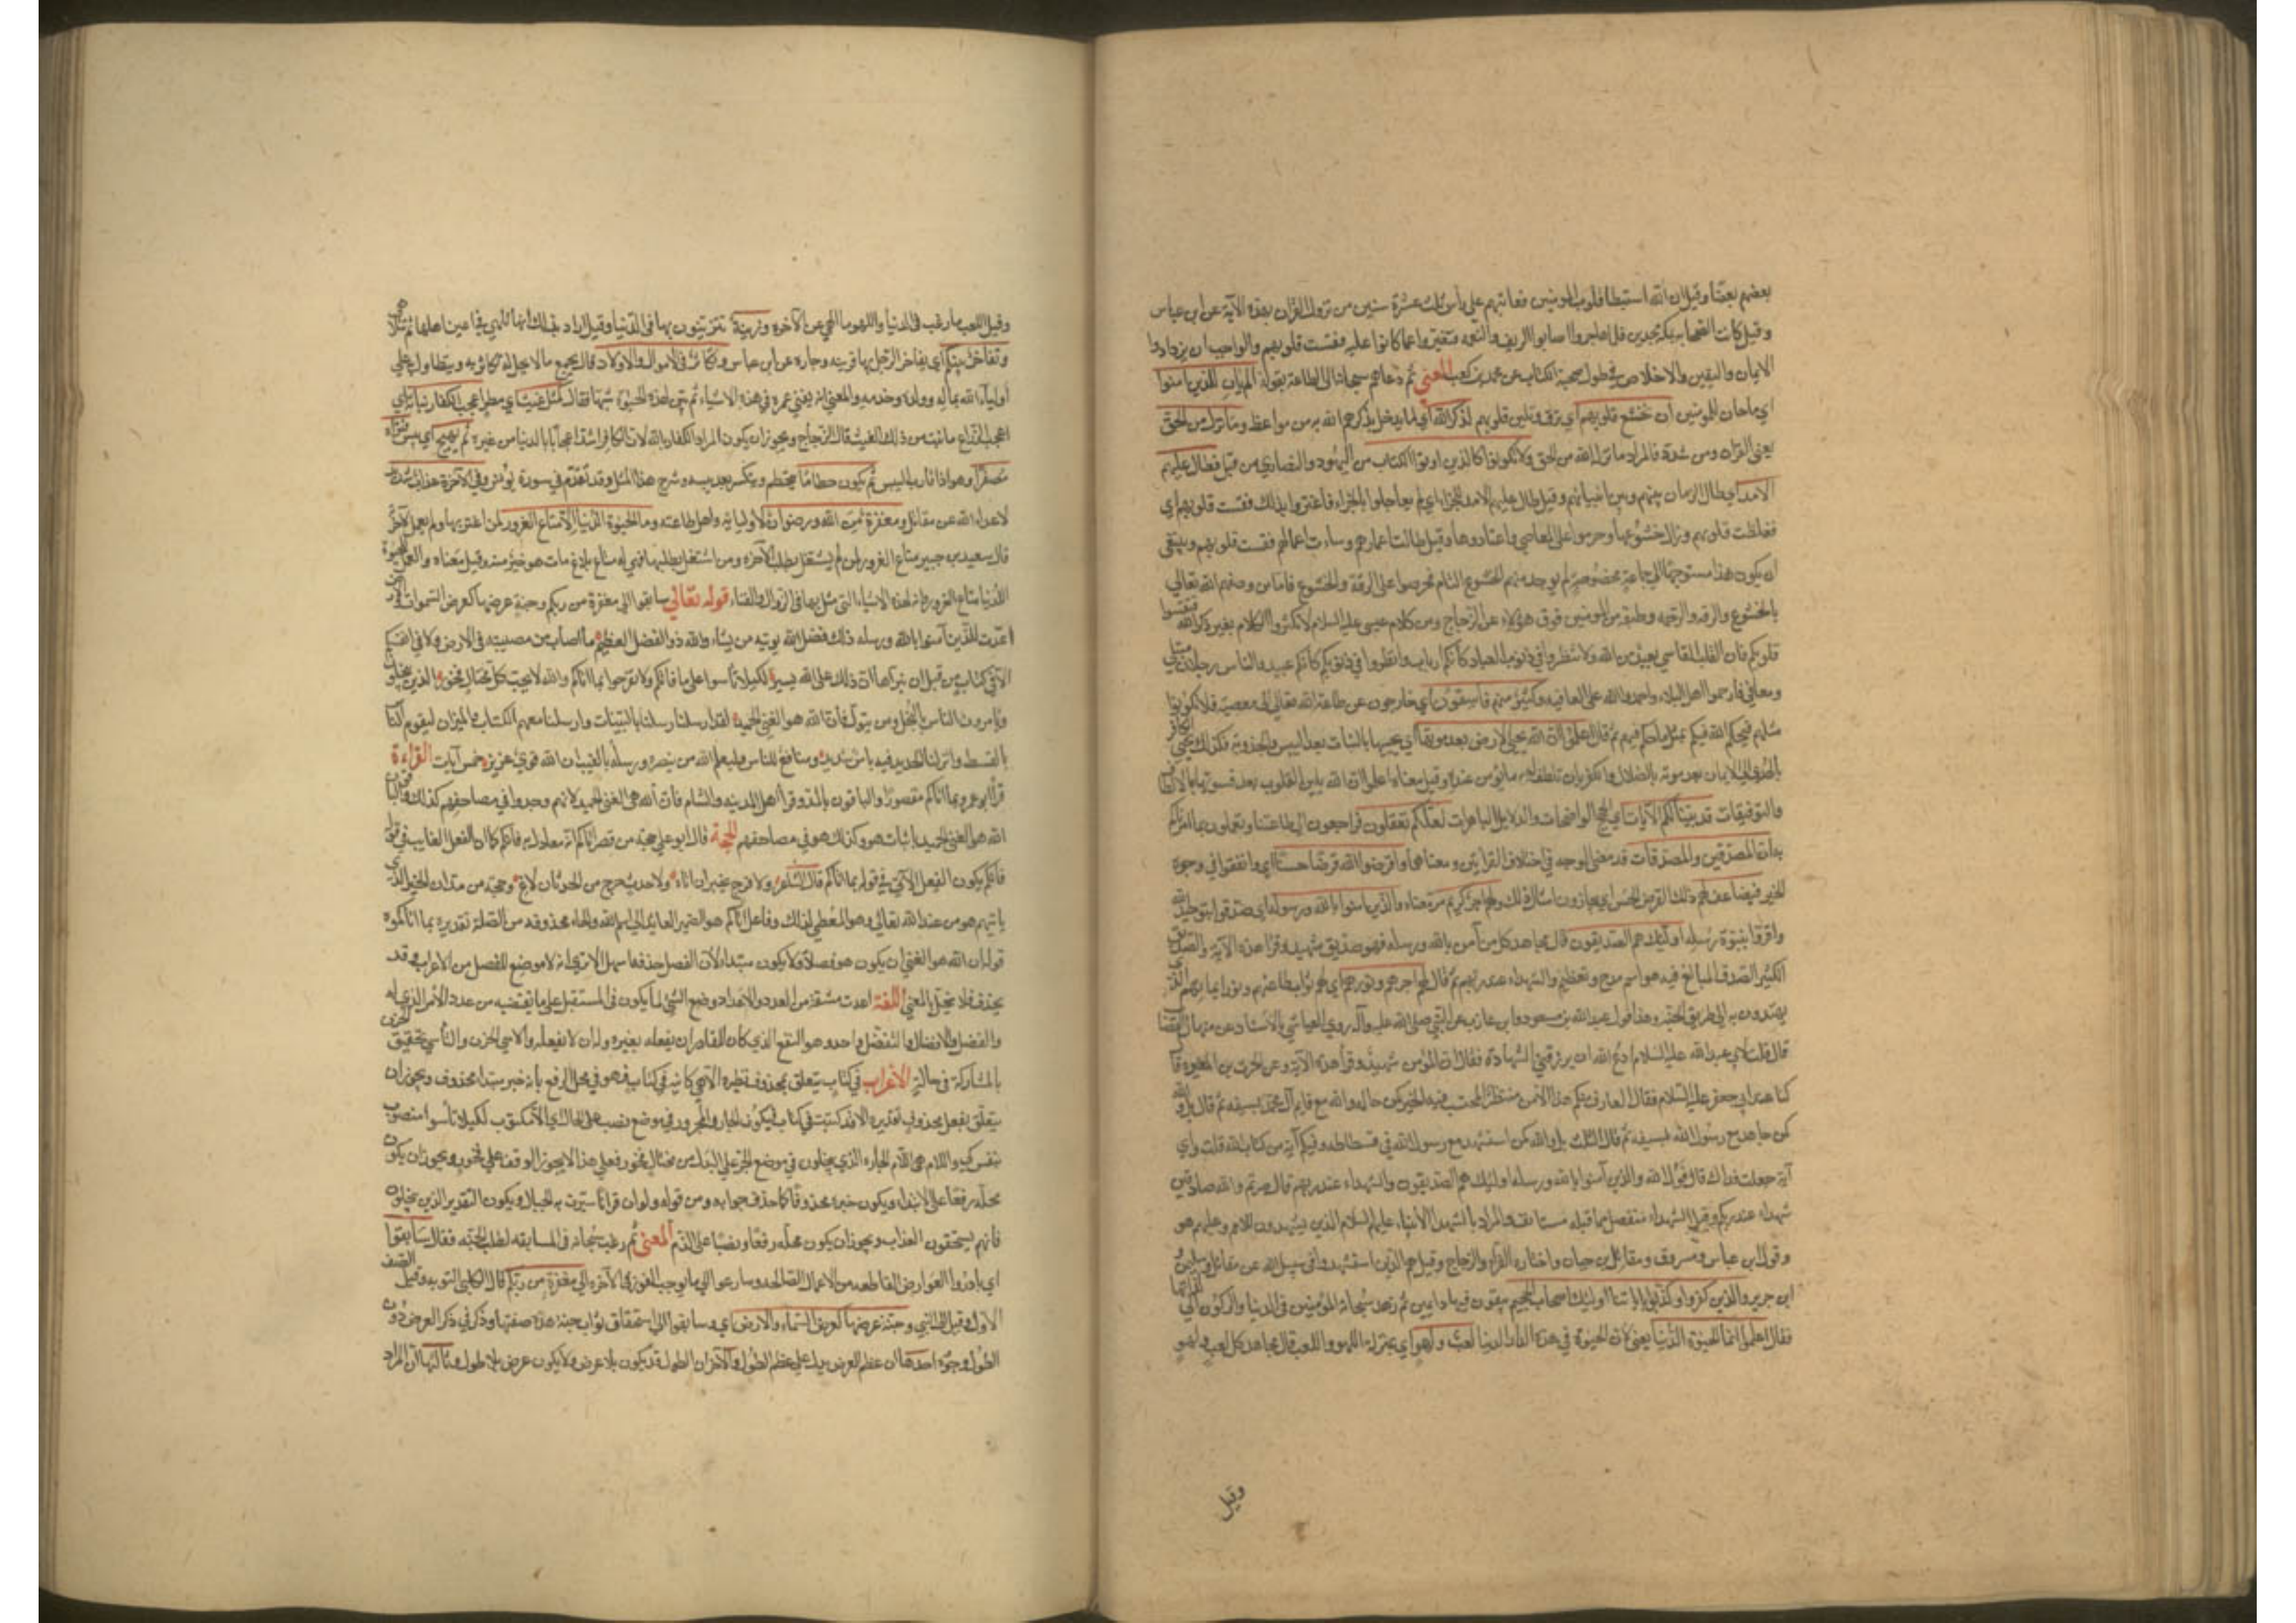 بعضهم بعضا وقيل ان الله استبطا قلوب المومنين فعاتبهم على راس ثلث عشرة سنين من نزول القران بهذه الآية عن ابن عباس
وقيل كانت الصحابة بمكة مجدبين فلما هاجروا اصابوا الريف والنعمة فتغيروا عما كانوا عليه فقست قلوبهم والواجب ان يزدادوا
الايمان واليقين والاخلاص في طول صحبة الكتاب عن محمد بن كعب المعنى ثم دعاهم سبحانه الى الطاعة بقوله الم يان للذين امنوا
اي ما حان للمومنين ان تخشع قلوبهم اي ترق وتلين قلوبهم لذكر الله اي لما يذكرهم الله به من مواعظه وما نزل من الحق
يعني القران ومن شدد فالمراد ما نزل الله من الحق ولا يكونوا كالذين اوتوا الكتاب من اليهود والنصارى من قبل فطال عليهم
الامد اي طال الزمان بينهم وبين انبيائهم وقيل طال عليهم الامد للجزاء اي لم يعاجلوا بالجزاء فاغتروا بذلك فقست قلوبهم اي
فغلظت قلوبهم وزال خشوعها ومرنوا على المعاصي واعتادوها وقيل طالت اعمارهم وساءت اعمالهم فقست قلوبهم وينبغي
ان يكون هذا متوجها الى جماعة مخصوصة لم يوجد منهم الخشوع التام فحرصوا على الرقة والخشوع فاما من وصفهم الله تعالى
بالخشوع والرقة والرحمة وطبقة من المومنين فوق هؤلاء عن الزجاج ومن كلام عيسى عليه السلام لا تكثروا الكلام بغير ذكر الله فتقسوا
قلوبكم فان القلب القاسي بعيد من الله ولا تنظروا في ذنوب العباد كانكم ارباب وانظروا في ذنوبكم كانكم عبيد والناس رجلان مبتلى
ومعافى فارحموا اهل البلاء واحمدوا الله على العافية وكثير منهم فاسقون اي خارجون عن طاعة الله تعالى الى معصيته فلا تكونوا
مثلهم فيحكم الله فيكم بمثل ما حكم فيهم ثم قال اعلموا ان الله يحيي الارض بعد موتها اي يحييها بالنبات بعد اليبس والجدوبة فكذلك يحيي الكافر
بالهدى الى الايمان بعد موته بالضلال والكفر بان يلطف له ما يؤمن عنده وقيل معناه اعلموا ان الله يلين القلوب بعد قسوتها بالالطاف
والتوفيقات قد بينا لكم الآيات اي الحجج الواضحات والدلايل الباهرات لعلكم تعقلون فراجعون الى طاعتنا وتعملون بما امرناكم
به ان المصدقين والمصدقات قد مضى الوجه في اختلاف القرايتين ومعناهما واقرضوا الله قرضا حسنا اي وانفقوا في وجوه
الخير فيضاعف لهم ذلك القرض الحسن اي يجازون امثال ذلك ولهم اجر كريم مر معناه والذين امنوا بالله ورسوله اي صدقوا بتوحيد الله
واقروا بنبوة رسله اولئك هم الصديقون قال مجاهد كل من آمن بالله ورسله فهو صديق شهيد وقرا هذه الآية والصديق
الكثير الصدق المبالغ فيه هو اسم مدح وتعظيم والشهداء عند ربهم ثم قال لهم اجرهم ونورهم اي لهم ثواب طاعتهم ونور ايمانهم الذي
يهتدون به الى طريق الجنة وهذا قول عبد الله بن مسعود وابن عازب عن النبي صلى الله عليه وآله روى العياشي بالاسناد عن منهال القصاب
قال قلت لابي عبد الله عليه السلام ادع الله ان يرزقني الشهادة فقال ان المؤمن شهيد وقرأ هذه الآية وعن الحرث بن المغيرة قال
كنا عند ابي جعفر عليه السلام فقال العارف منكم هذا الامر منتظر له المحتسب فيه الخير كمن جاهد والله مع قايم آل محمد بسيفه ثم قال بل والله
كمن جاهد مع رسول الله بسيفه ثم قال الثالثة بل والله كمن استشهد مع رسول الله في فسطاطه وفيكم آية من كتاب الله قلت واي
آية جعلت فداك قال قول الله والذين آمنوا بالله ورسله اولئك هم الصديقون والشهداء عند ربهم قال صرتم والله صادقين
شهداء عند ربكم وقيل الشهداء منفصل مما قبله مستانف والمراد بالشهداء الأنبياء عليهم السلام الذين يشهدون للامم وعليهم هو
وقول ابن عباس ومسروق ومقاتل بن حيان واختاره الفراء والزجاج وقيل هم الذين استشهدوا في سبيل الله عن مقاتل بن سليمن
ابن جرير والذين كفروا وكذبوا باياتنا اولئك اصحاب الجحيم يبقون فيها دايمين ثم زهد سبحانه المؤمنين في الدنيا والركون الى لذاتها
فقال اعلموا انما الحيوة الدنيا يعني ان الحيوة في هذه الدار الدنيا لعب ولهو اي بمنزلة اللهو واللعب قال مجاهد كل لعب لهو
وقيل
وقيل اللعب ما رغب في الدنيا واللهو ما الهى عن الآخرة وزينة تتزينون بها في الدنيا وقيل اراد بذلك انها تتحلى في اعين اهلها ثم تتلاشى
وتفاخر بينكم اي يفاخر الرجل بها قرينه وجاره عن ابن عباس وتكاثر في الاموال والاولاد قال يجمع ما لا يحل له تكاثرا به ويتطاول على
اولياء الله بماله وولده وخدمه والمعنى انه يفني عمره في هذه الاشياء ثم بين لهذه الحيوة شبها فقال كمثل غيث اي مطر اعجب الكفار نباته اي
اعجب الزراع ما نبت من ذلك الغيث قال الزجاج ويجوز ان يكون المراد الكفار بالله لان الكافر اشد اعجابا بالدنيا من غيره ثم يهيج اي ييبس فتراه
مصفرا وهو اذا قارب اليبس ثم يكون حطاما يتحطم ويتكسر بعد يبسه وشرح هذا المثل قد تقدم في سورة يونس وفي الآخرة عذاب شديد
لاعداء الله عن مقاتل ومغفرة من الله ورضوان لاوليائه واهل طاعته وما الحيوة الدنيا الا متاع الغرور لمن اغتر بها ولم يعمل لآخرته
قال سعيد بن جبير متاع الغرور لمن لم يشتغل بطلب الآخرة ومن اشتغل بطلبها فهي له متاع بلاغ الى ما هو خير منه وقيل معناه والعمل للحيوة
الدنيا متاع الغرور وانه لهذه الاشياء التي مثل بها في الزوال والفناء قوله تعالى سابقوا الى مغفرة من ربكم وجنة عرضها كعرض السموات والارض
اعدت للذين آمنوا بالله ورسله ذلك فضل الله يوتيه من يشاء والله ذو الفضل العظيم ما اصاب من مصيبة في الارض ولا في انفسكم
الا في كتاب من قبل ان نبراها ان ذلك على الله يسير لكيلا تأسوا على ما فاتكم ولا تفرحوا بما اتاكم والله لا يحب كل مختال فخور الذين يبخلون
ويامرون الناس بالبخل ومن يتول فان الله هو الغني الحميد لقد ارسلنا رسلنا بالبينات وارسلنا معهم الكتاب والميزان ليقوم الناس
بالقسط وانزلنا الحديد فيه باس شديد ومنافع للناس وليعلم الله من ينصره ورسله بالغيب ان الله قوي عزيز خمس آيات القراءة
قرا ابو عمرو بما اتاكم مقصورا والباقون بالمد وقرأ اهل المدينة والشام فان الله الغني الحميد لانهم وجدوا في مصاحفهم كذلك والباقون فان
الله هو الغني الحميد باثبات هو وكذلك هو في مصاحفهم الحجة قال ابو علي حجة من قصر اتاكم انه معادل به فاتكم فكما ان الفعل الغايب في قوله
فاتكم يكون الفعل الآتي في قوله بما اتاكم قال الشاعر ولا فرح بخير ان اتاه ولا حديث جزع من الحدثان لاع وحجة من مد ان الخير الذي
ياتيهم هو من عند الله تعالى وهو المعطي لذلك وفاعل اتاكم هو الضمير العايد الى اسم الله والهاء محذوفة من الصلة تقديره بما اتاكموه
قوله ان الله هو الغني ان يكون هو فصلا ولا يكون مبتداء لان الفصل حذفه اسهل الا ترى انه لا موضع للفصل من الاعراب وقد
يحذف فلا يخل بالمعنى اللغة اعدت مشتقة من العدد والاعداد وضع الشيء لما يكون في المستقبل على ما يقتضيه من عدد الأمر الذي له
والفضل والافضال والتفضل واحد وهو النفع الذي كان للقادر ان يفعله بغيره وله ان لا يفعله والاسى الحزن والتأسي تخفيف الحزن
بالمشاركة في حاله الأعراب في كتاب يتعلق بمحذوف تقديره الا هي كائنة في كتاب فهو في محل الرفع بانه خبر مبتدا محذوف ويجوز ان
يتعلق بفعل محذوف تقديره الا قد كتبت في كتاب فيكون الجار والمجرور في موضع نصب على الحال اي الا مكتوبة لكيلا تأسوا منصوب
بنفس كي واللام هي اللام الجارة الذين يبخلون في موضع الجر على البدل من مختال فخور فعلى هذا لا يجوز الوقف على فخور ويجوز ان يكون
محله رفعا على الابتداء ويكون خبره محذوفا كما حذف جوابه ومن قوله ولو ان قرانا سيرت به الجبال ويكون التقدير الذين يبخلون
فانهم يستحقون العذاب ويجوز ان يكون محله رفعا ونصبا على الذم المعنى ثم رغب سبحانه في المسابقة لطلب الجنة فقال سابقوا
اي بادروا العوارض القاطعة من الاعمال الصالحة وسارعوا الى ما يوجب الفوز في الآخرة الى مغفرة من ربكم قال الكلبي الى التوبة وقيل الى الصف
الأول وقيل الى النبي وجنة عرضها كعرض السماء والارض اي وسابقوا الى استحقاق ثواب جنة هذه صفتها وذكر في ذكر العرض دون
الطول وجوه احدها ان عظم العرض يدل على عظم الطول والآخر ان الطول قد يكون بلا عرض ولا يكون عرض بلا طول وثالثها ان المراد